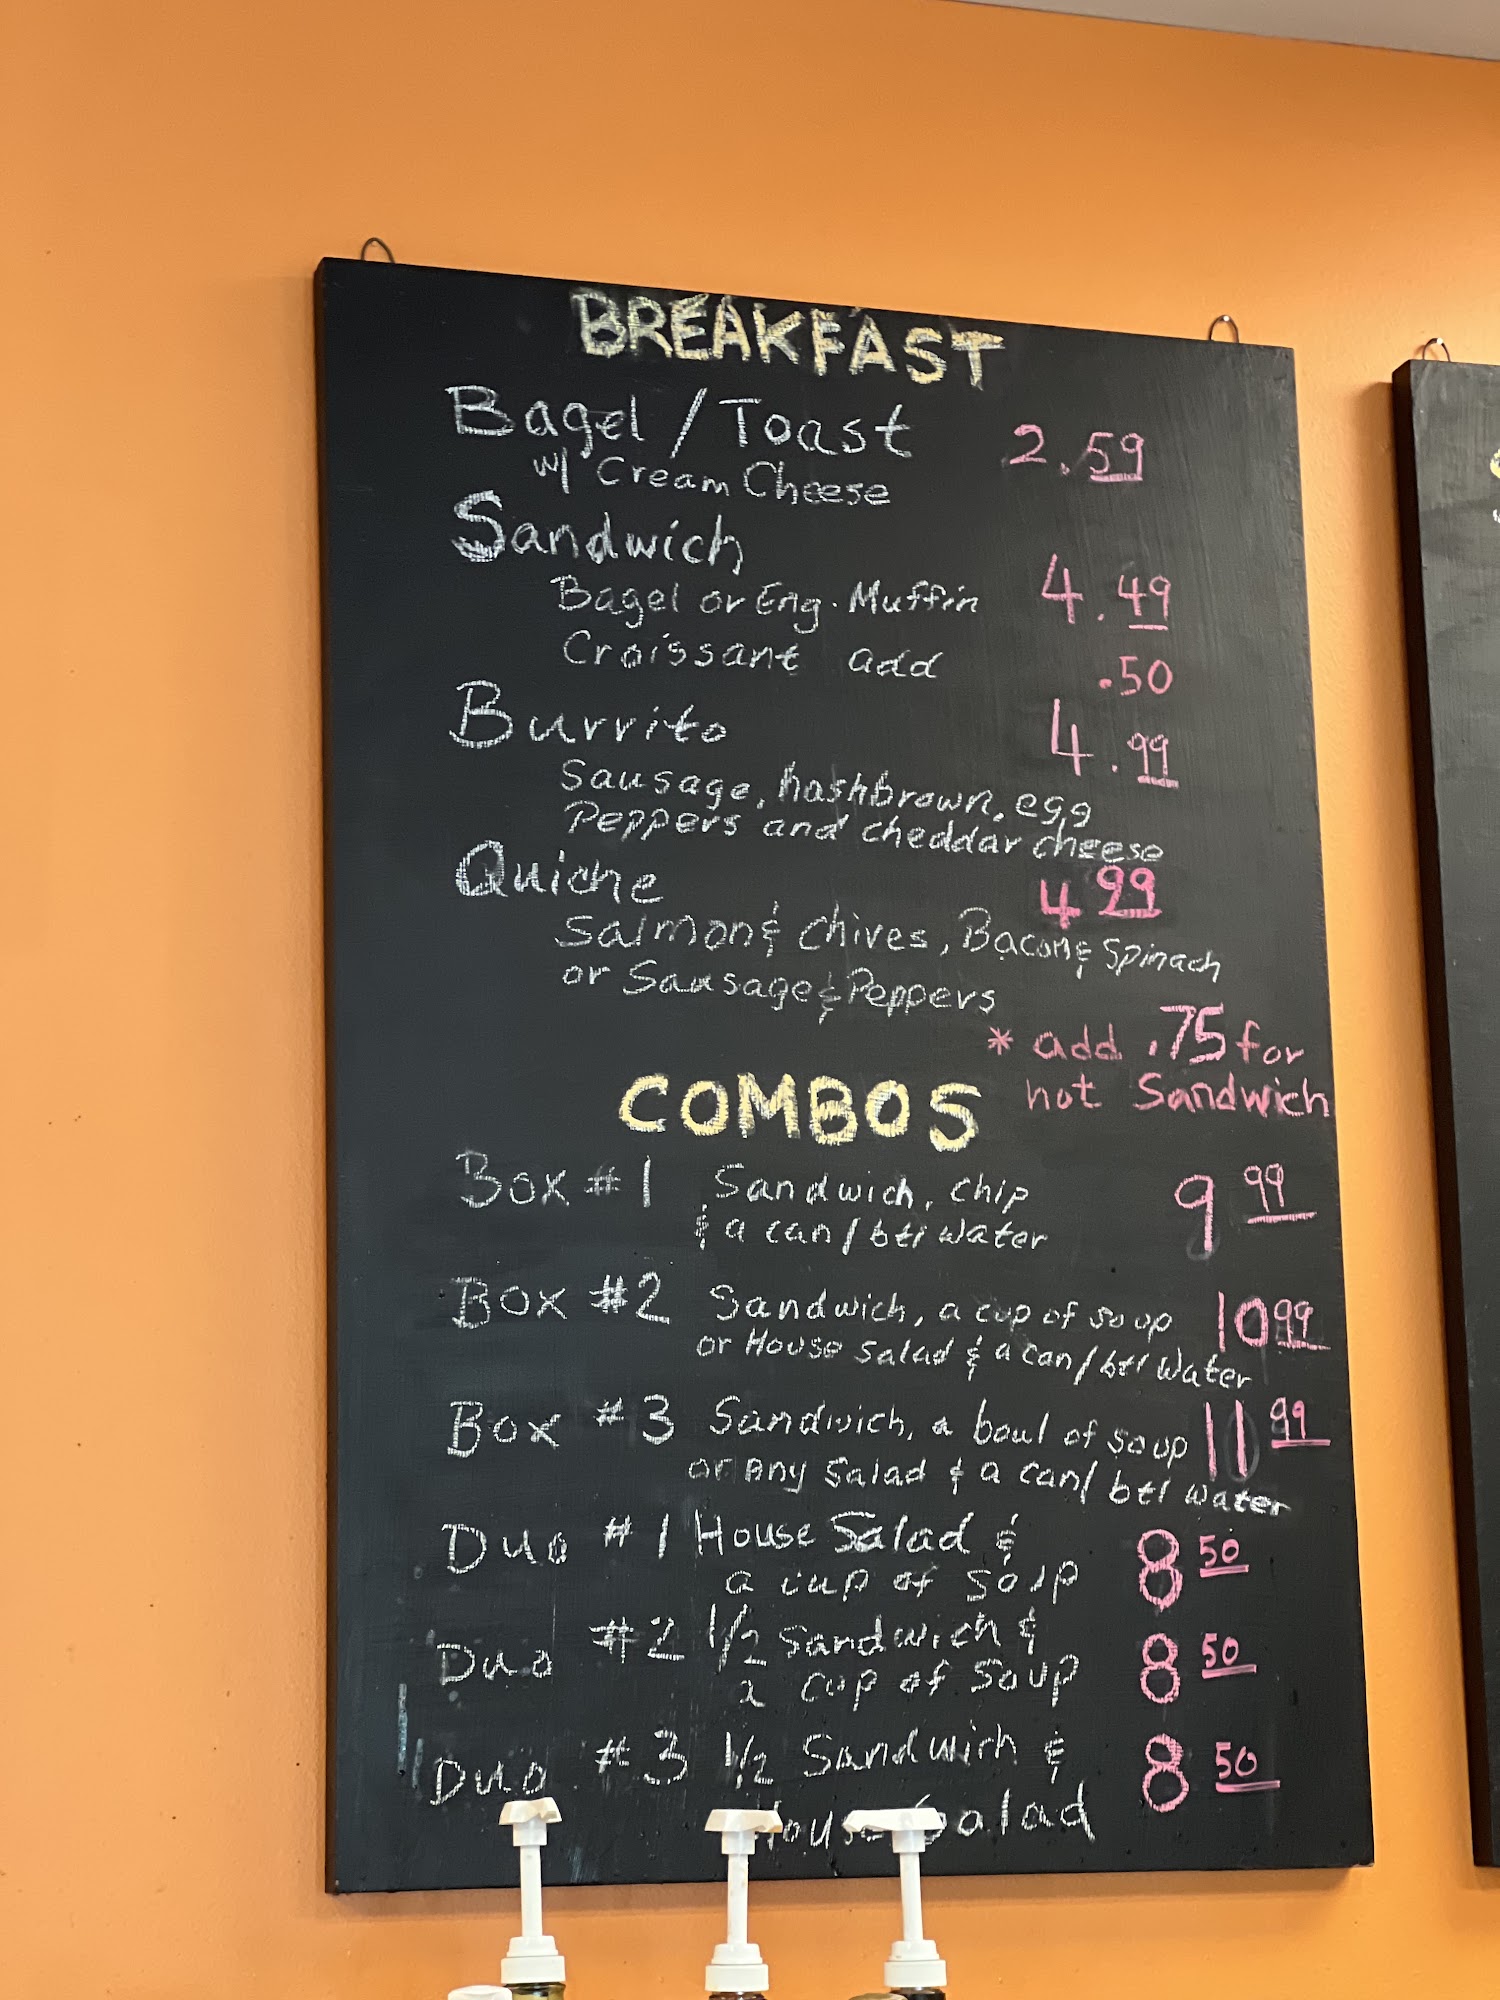 BREAKFAST
Bagel / Toast 2.59
w/ Cream Cheese
Sandwich
Bagel or Eng. Muffin 4.49
Croissant add .50
Burrito 4.99
Sausage, hashbrown, egg
Peppers and cheddar cheese
Quiche 4 99
Salmon & Chives, Bacon & Spinach
or Sausage & Peppers
* add .75 for
hot Sandwich
COMBOS
Box #1 Sandwich, chip 9 99
& a can / btl water
Box #2 Sandwich, a cup of soup 10 99
or House Salad & a can / btl Water
Box #3 Sandwich, a bowl of soup 11 99
or Any Salad & a can / btl water
Duo #1 House Salad & 8 50
a cup of soup
Duo #2 1/2 Sandwich & 8 50
a cup of soup
Duo #3 1/2 Sandwich & 8 50
House Salad